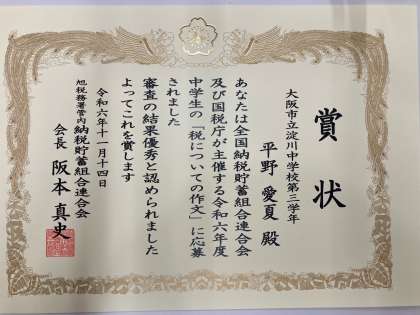 賞状
大阪市立淀川中学校第三学年
平野愛夏殿
あなたは全国納税貯蓄組合連合会
及び国税庁が主催する令和六年度
中学生の「税についての作文」に応募
されました
審査の結果優秀と認められました
よってこれを賞します
令和六年十一月十四日
旭税務署管内納税貯蓄組合連合会
会長 阪本真史